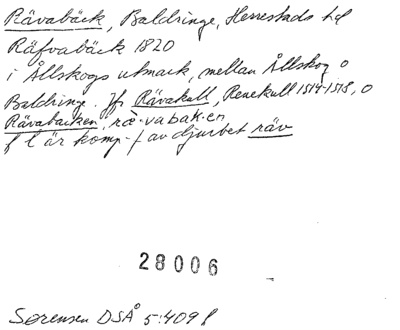 Rävabäck, Baldringe, Herrestads hd
Räfvabäck 1820
i Ållskogs utmark, mellan Ållskog o
Baldringe. Jfr Rävakull, Revekull 1514-1518, o
Rävabacken, rævabaken
f l är komp.-f av djurbet räv
28006
Sørensen DSÅ 5:409 f